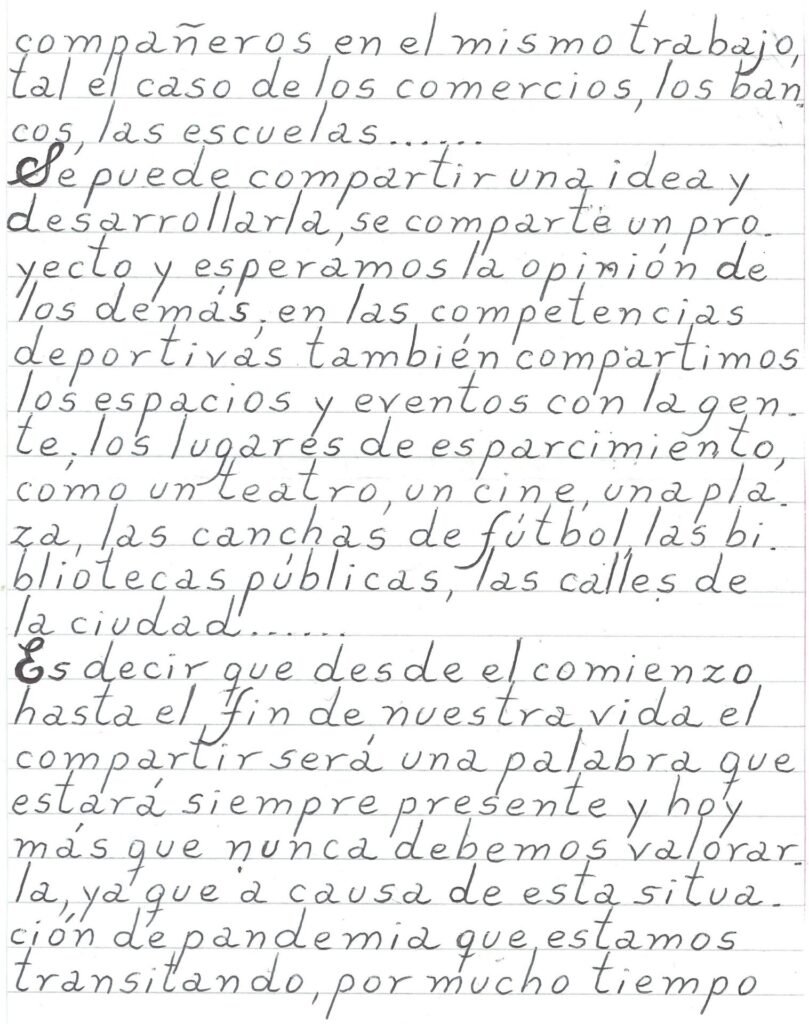 compañeros en el mismo trabajo,
tal el caso de los comercios, los ban
cos, las escuelas......
Se puede compartir una idea y
desarrollarla, se comparte un pro.
yecto y esperamos la opinión de
los demás, en las competencias
deportivas también compartimos
los espacios y eventos con la gen.
te, los lugares de esparcimiento,
como un teatro, un cine, una pla.
za, las canchas de fútbol, las bi.
bliotecas públicas, las calles de
la ciudad.......
Es decir que desde el comienzo
hasta el fin de nuestra vida el
compartir será una palabra que
estará siempre presente y hoy
más que nunca debemos valorar.
la, ya que a causa de esta situa.
ción de pandemia que estamos
transitando, por mucho tiempo